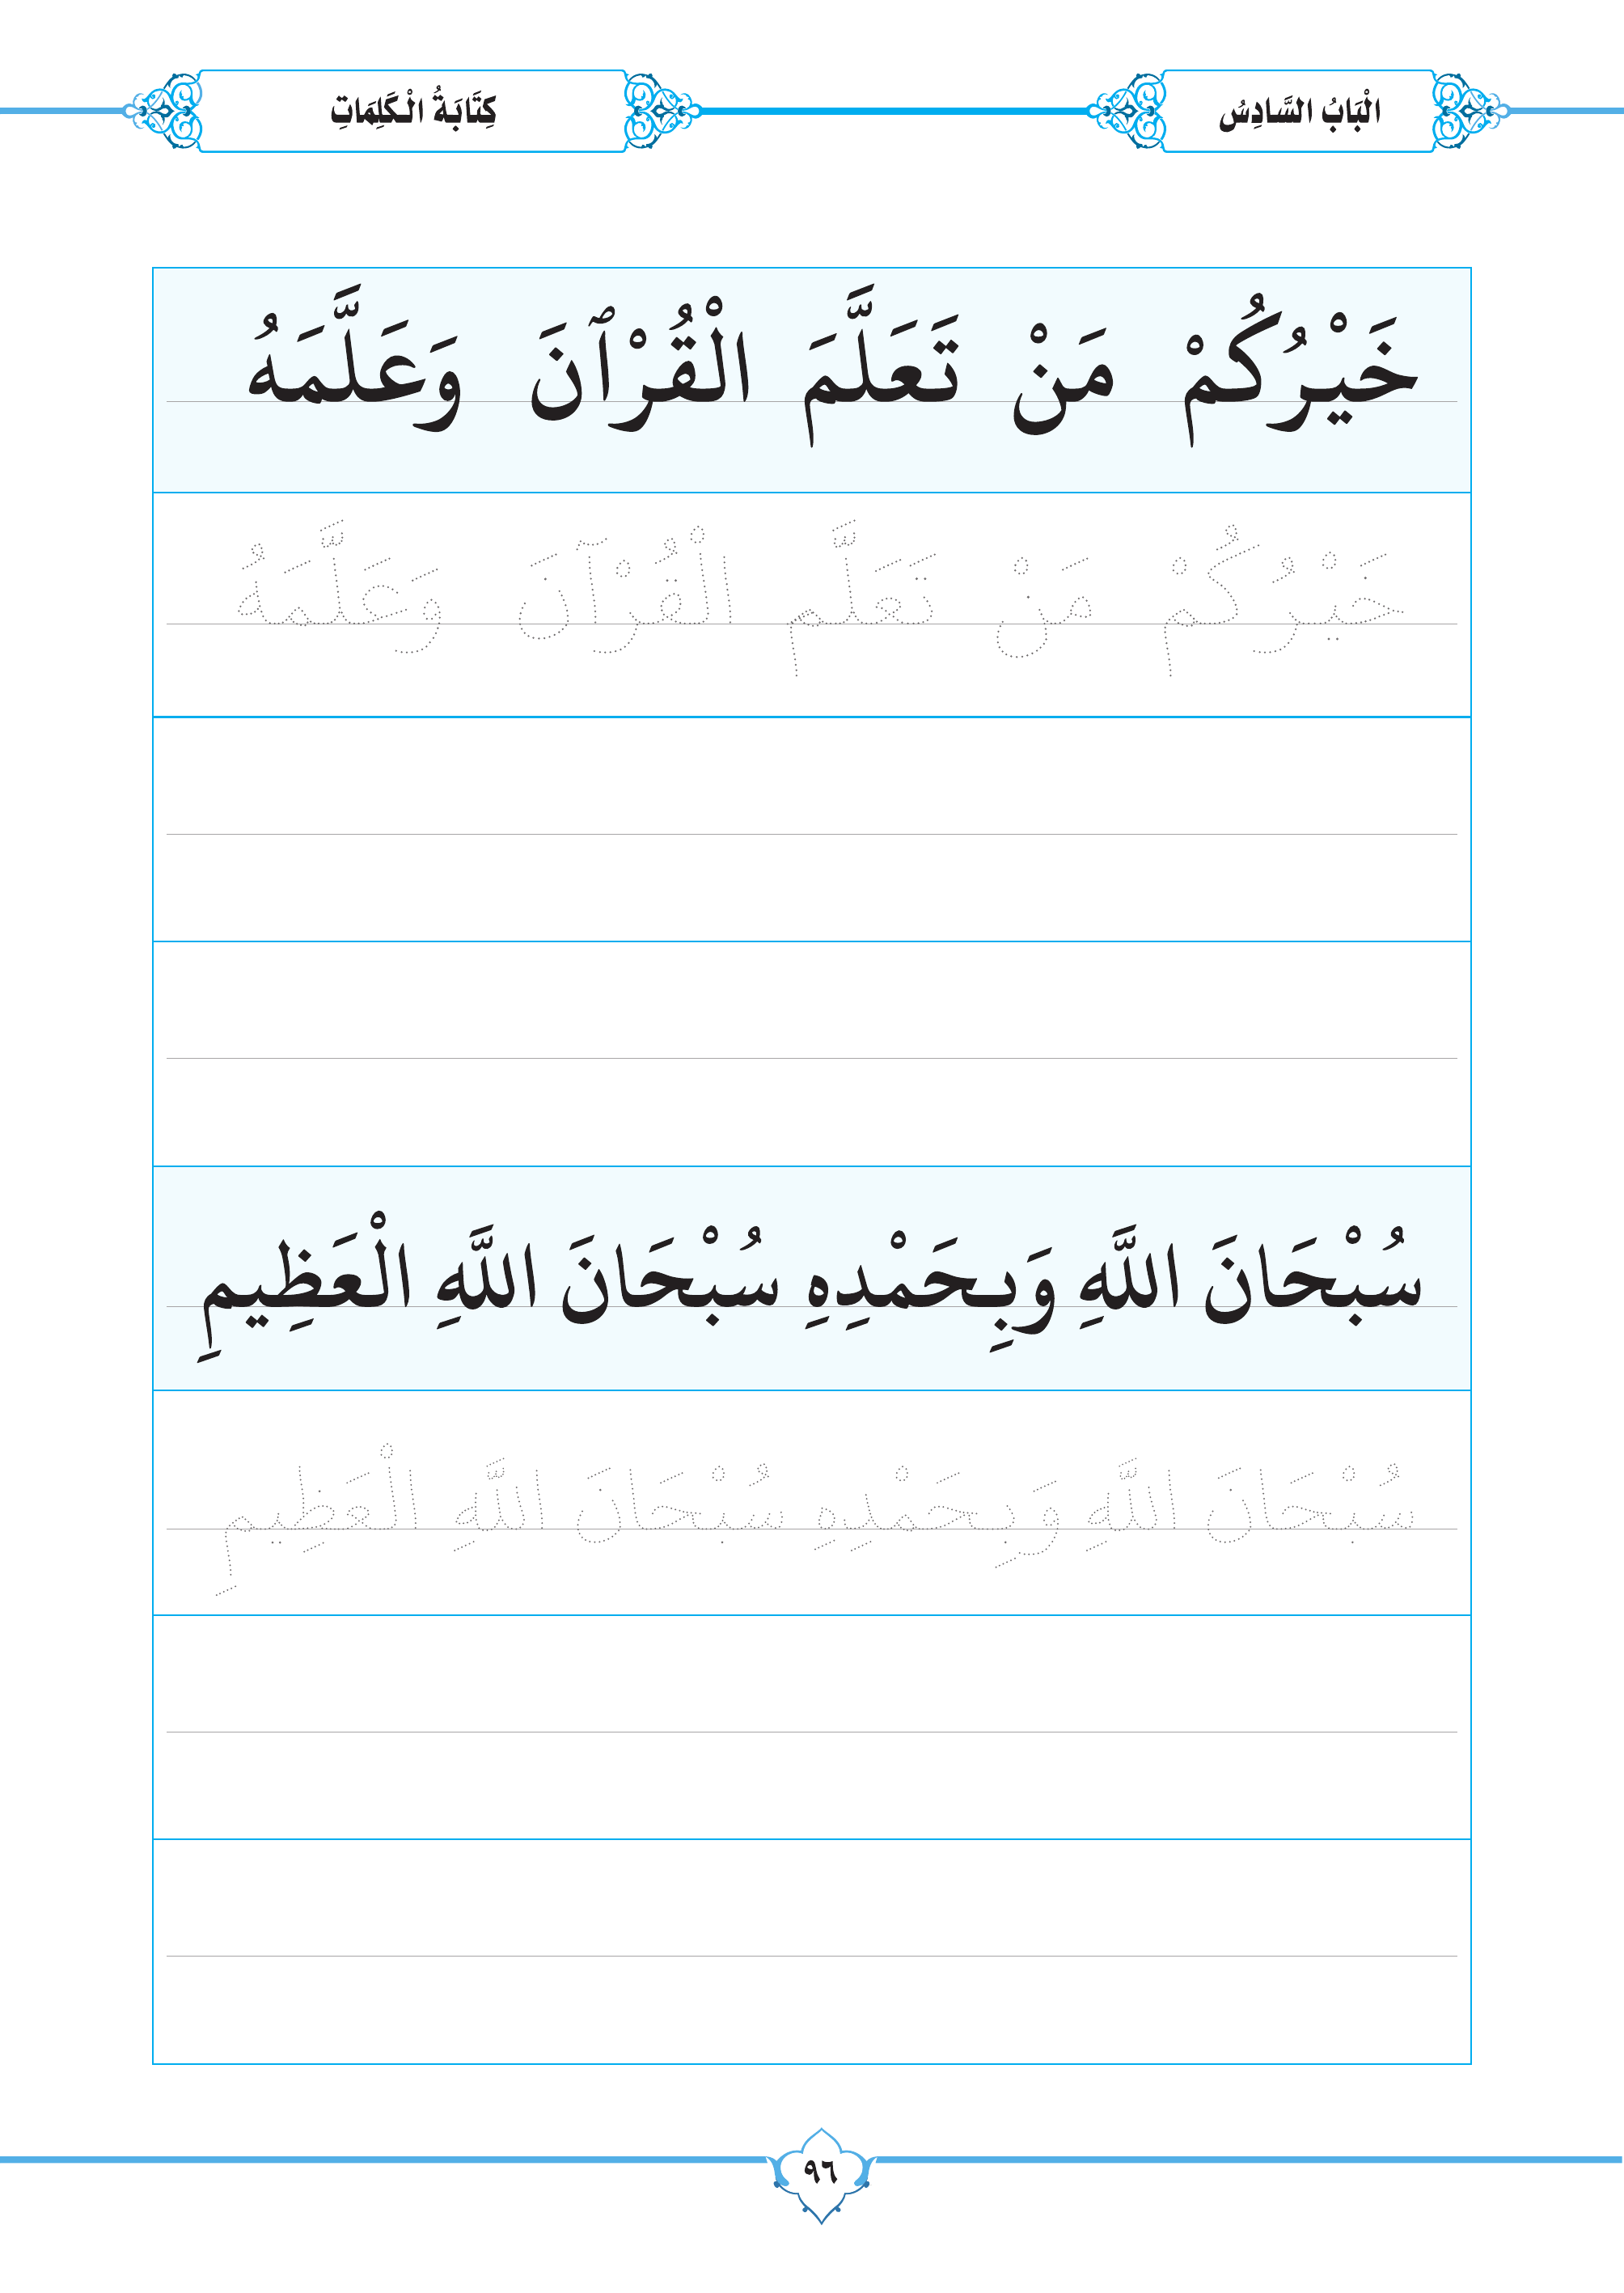 الْبَابُ السَّادِسُ
كِتَابَةُ الْكَلِمَاتِ
خَيْرُكُمْ مَنْ تَعَلَّمَ الْقُرْآنَ وَعَلَّمَهُ
خَيْرُكُمْ مَنْ تَعَلَّمَ الْقُرْآنَ وَعَلَّمَهُ
سُبْحَانَ اللَّهِ وَبِحَمْدِهِ سُبْحَانَ اللَّهِ الْعَظِيمِ
سُبْحَانَ اللَّهِ وَبِحَمْدِهِ سُبْحَانَ اللَّهِ الْعَظِيمِ
٩٦